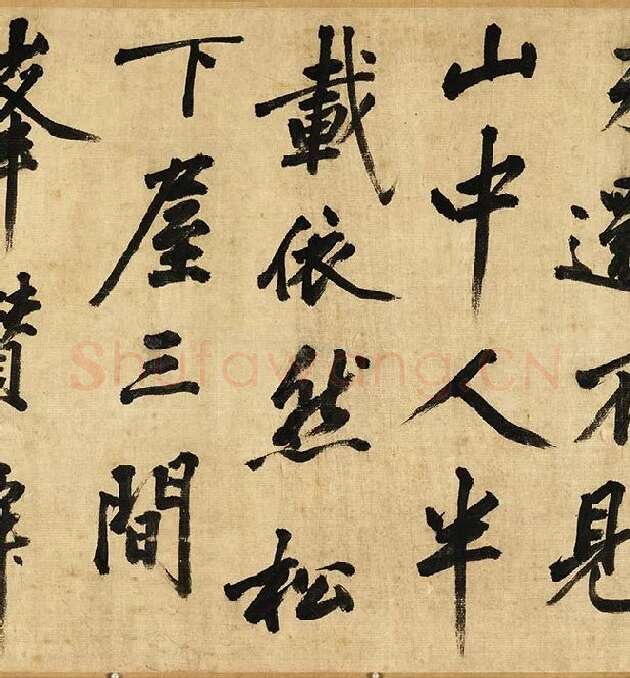 還不見
山中人半
載依然松
下屋三間
Shufawang.CN